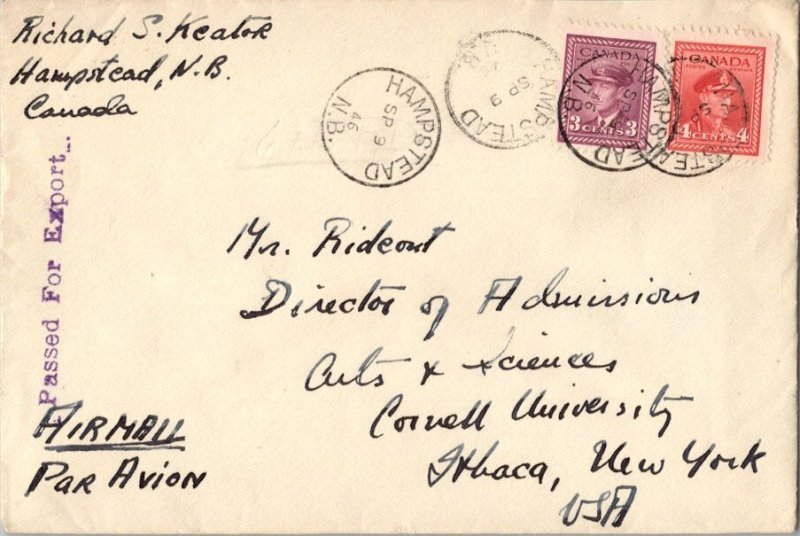 Richard S. Keator
Hampstead, N.B.
Canada
HAMPSTEAD
SP 9
46
N.B.
HAMPSTEAD
SP 9
N.B.
CANADA
POSTES POSTAGE
3 CENTS 3
HAMPSTEAD
SP 9
46
N.B.
CANADA
4 CENTS 4
Passed For Export...
Mr. Rideout
Director of Admissions
Arts & Sciences
Cornell University
Ithaca, New York
USA
AIRMAIL
PAR AVION